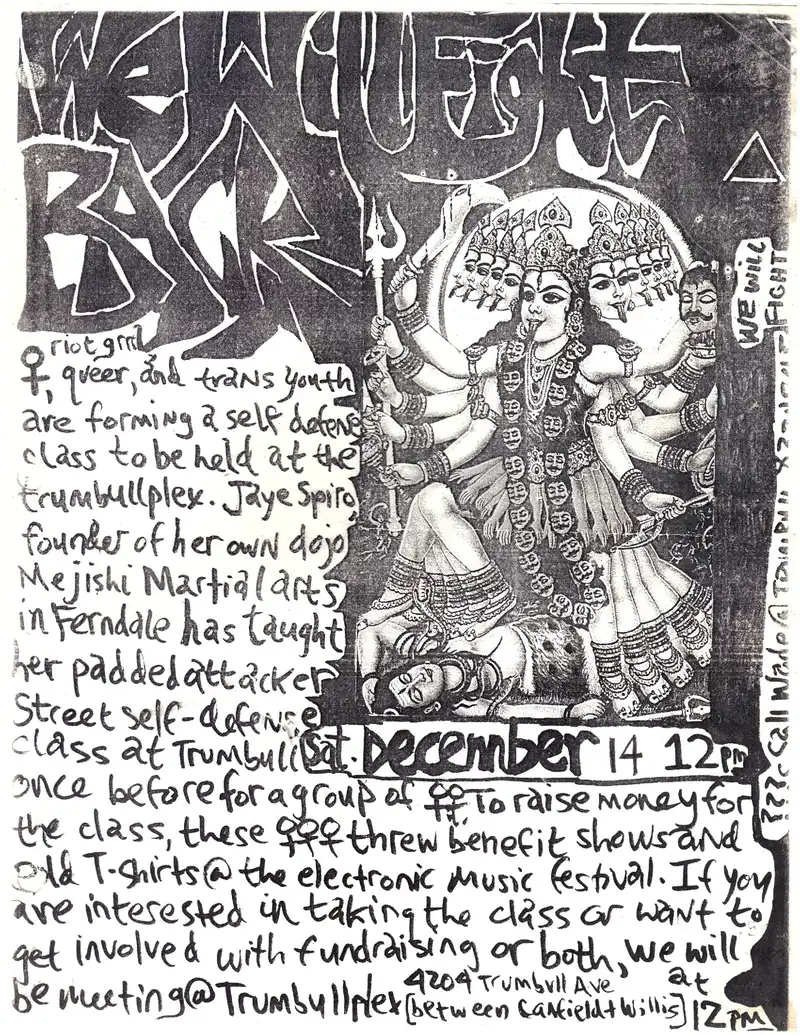 We Will Fight
BACK
♀ riot grrrl,
queer, and trans youth
are forming a self defense
class to be held at the
trumbullplex. Jaye Spiro,
founder of her own dojo
Mejishi Martial arts
in Ferndale has taught
her padded attacker
Street self-defense
class at Trumbull
once before for a group of ♀♀. To raise money for
the class, these ♀♀♀ threw benefit shows and
sold T-shirts @ the electronic music festival. If you
are interested in taking the class or want to
get involved with fundraising or both, we will
be meeting @ Trumbullplex at
4204 Trumbull Ave
[between Canfield + Willis] 12 PM
Sat. December 14 12pm
WE WILL
FIGHT
???s Call Wade @ Trumbull